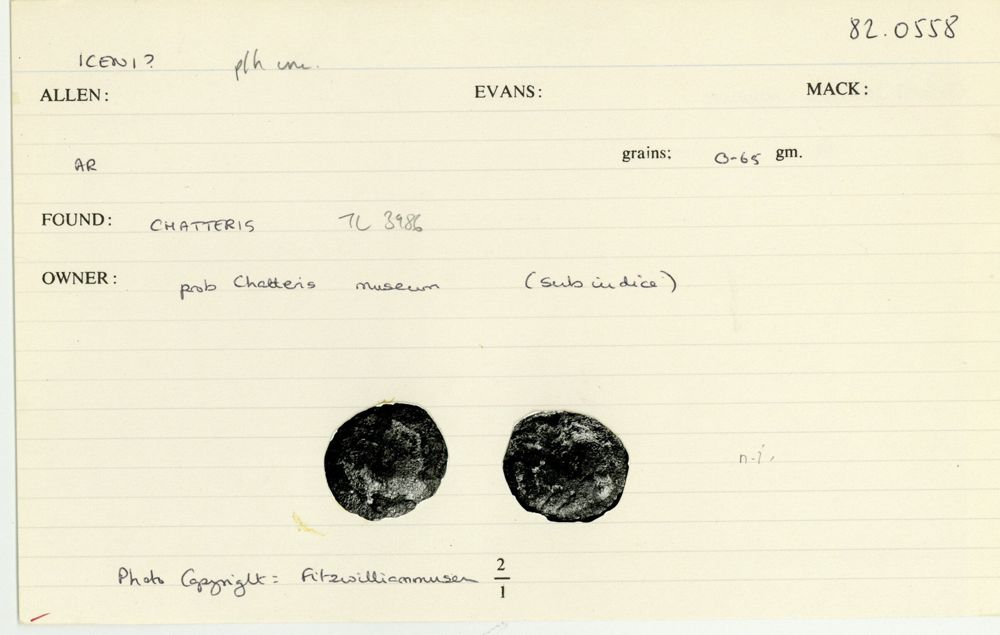 82.0558
ICENI?
ALLEN: EVANS: MACK:
AR grains: 0-65 gm.
FOUND: CHATTERIS TL 3986
OWNER: prob Chatteris museum (sub iudice)
n.i.
Photo Copyright = Fitzwilliammuseum 2/1